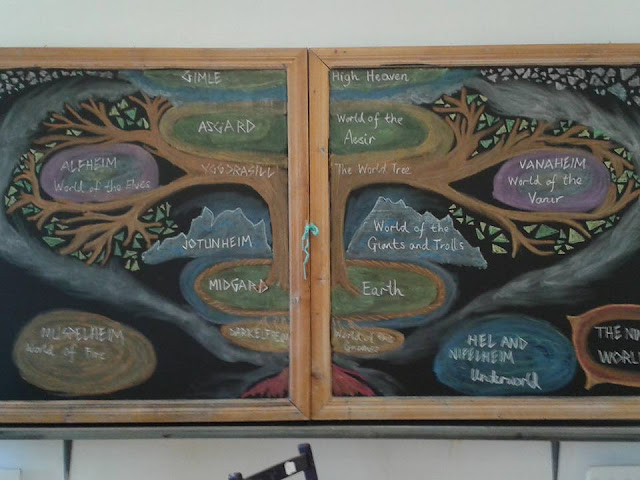 GIMLE High Heaven
ASGARD World of the
Aesir
ALFHEIM
World of the Elves
YGGDRASILL The World Tree
VANAHEIM
World of the
Vanir
JOTUNHEIM World of the
Giants and Trolls
MIDGARD Earth
DARKELFHEIM World of the
Gnomes
MUSPELHEIM
World of Fire
HEL AND
NIFELHEIM
Underworld
THE
WORL